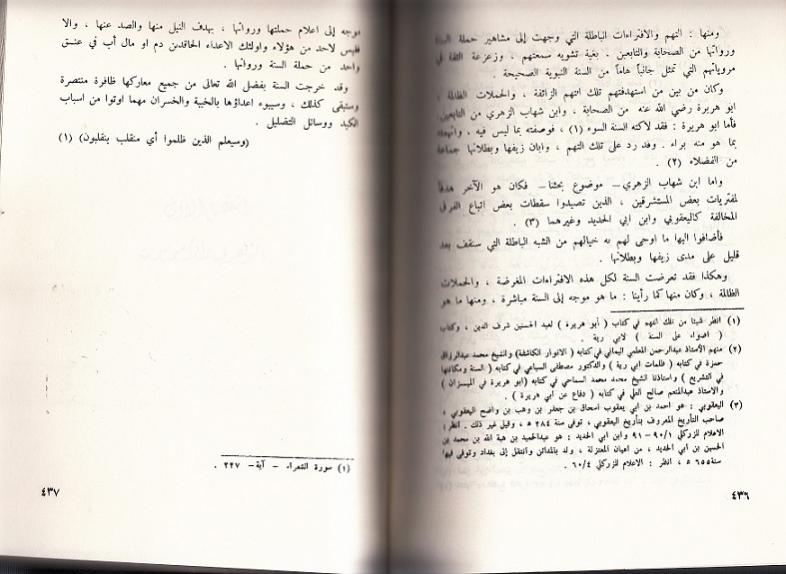 ومنها : التهم والافتراءات الباطلة التي وجهت إلى مشاهير حملة السنة
ورواتها من الصحابة والتابعين ، بغية تشويه سمعتهم ، وزعزعة الثقة في
مروياتهم التي تمثل جانباً هاماً من السنة النبوية الصحيحة .
وكان من بين من استهدفتهم تلك التهم الزائفة ، والحملات الظالمة ،
ابو هريرة رضي الله عنه من الصحابة ، وابن شهاب الزهري من التابعين .
فأما ابو هريرة : فقد لاكته السنة السوء (١) ، فوصفته بما ليس فيه ، واتهمته
بما هو منه براء . وقد رد على تلك التهم ، وابان زيفها وبطلانها جماعة
من الفضلاء (٢) .
واما ابن شهاب الزهري – موضوع بحثنا – فكان هو الآخر هدفاً
لمفتريات بعض المستشرقين ، الذين تصيدوا سقطات بعض اتباع الفرق
المخالفة كاليعقوبي وابن ابي الحديد وغيرهما (٣) .
فأضافوا اليها ما اوحى لهم به خيالهم من الشبه الباطلة التي سنقف بعد
قليل على مدى زيفها وبطلانها .
وهكذا فقد تعرضت السنة لكل هذه الافتراءات المغرضة ، والحملات
الظالمة ، وكان منها كما رأينا : ما هو موجه إلى السنة مباشرة ، ومنها ما هو
(١) انظر شيئا من تلك التهم في كتاب ( أبو هريرة ) لعبد الحسين شرف الدين ، وكتاب
( اضواء على السنة ) لابي رية .
(٢) منهم الأستاذ عبدالرحمن المعلمي اليماني في كتابه ( الانوار الكاشفة) والشيخ محمد عبدالرزاق
حمزة في كتابه ( ظلمات ابي رية ) والدكتور مصطفى السباعي في كتابه ( السنة ومكانتها
في التشريع ) واستاذنا الشيخ محمد محمد السماحي في كتابه (ابو هريرة في الميزان )
والاستاذ عبدالمنعم صالح العلي في كتابه ( دفاع عن أبي هريرة ) .
(٣) اليعقوبي : هو احمد بن ابي يعقوب اسحاق بن جعفر بن وهب بن واضح اليعقوبي ،
صاحب التأريخ المعروف بتأريخ اليعقوبي ، توفى سنة ٢٨٤ ه ، وقيل غير ذلك . انظر :
الاعلام للزركلي ٩٠/١ – ٩١ وابن ابي الحديد : هو عبدالحميد بن هبة الله بن محمد بن
الحسين بن أبي الحديد ، من اعيان المعتزلة ، ولد بالمدائن وانتقل إلى بغداد وتوفى فيها
سنة ٦٥٥ ه ، انظر : الاعلام للزركلي ٦٠/٤ .
٤٣٦
موجه إلى اعلام حملتها ورواتها ، بهدف النيل منها والصد عنها ، والا
فليس لاحد من هؤلاء واولئك الاعداء الحاقدين دم او مال أب في عنق
واحد من حملة السنة ورواتها .
وقد خرجت السنة بفضل الله تعالى من جميع معاركها ظافرة منتصرة
وستبقى كذلك ، وسيبوء اعداؤها بالخيبة والخسران مهما اوتوا من اسباب
الكيد ووسائل التضليل .
(وسيعلم الذين ظلموا أي منقلب ينقلبون) (١)
(١) سورة الشعراء – آية – ٢٢٧ .
٤٣٧